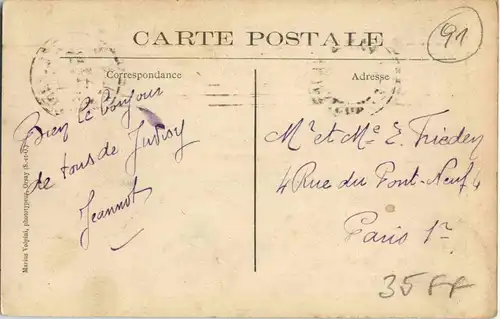 CARTE POSTALE
91
Correspondance
Adresse
Bien le bonjour
de tous de Juvisy
Jeannot
Mr et Me E. Frieden
4 Rue du Pont-Neuf 4
Paris 1er
35 FF
Marius Volpini, phototypeur, Orsay (S.-et-O.)